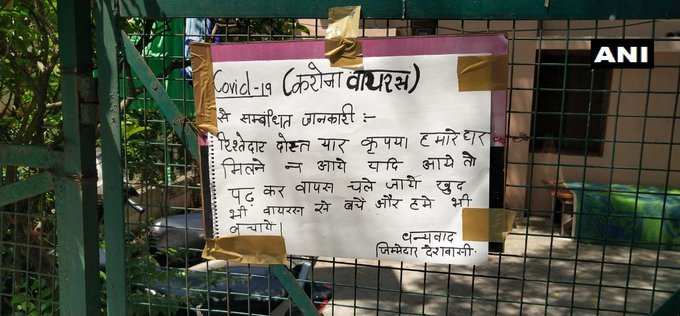 ANI
Covid-19 (करोना वायरस)
से सम्बंधित जानकारी :-
रिश्तेदार दोस्त यार कृपया हमारे घर
मिलने न आये यदि आये तो
पढ़ कर वापस चले जायें खुद
भी वायरस से बचें और हमे भी
बचायें।
धन्यवाद
जिम्मेदार देशवासी.